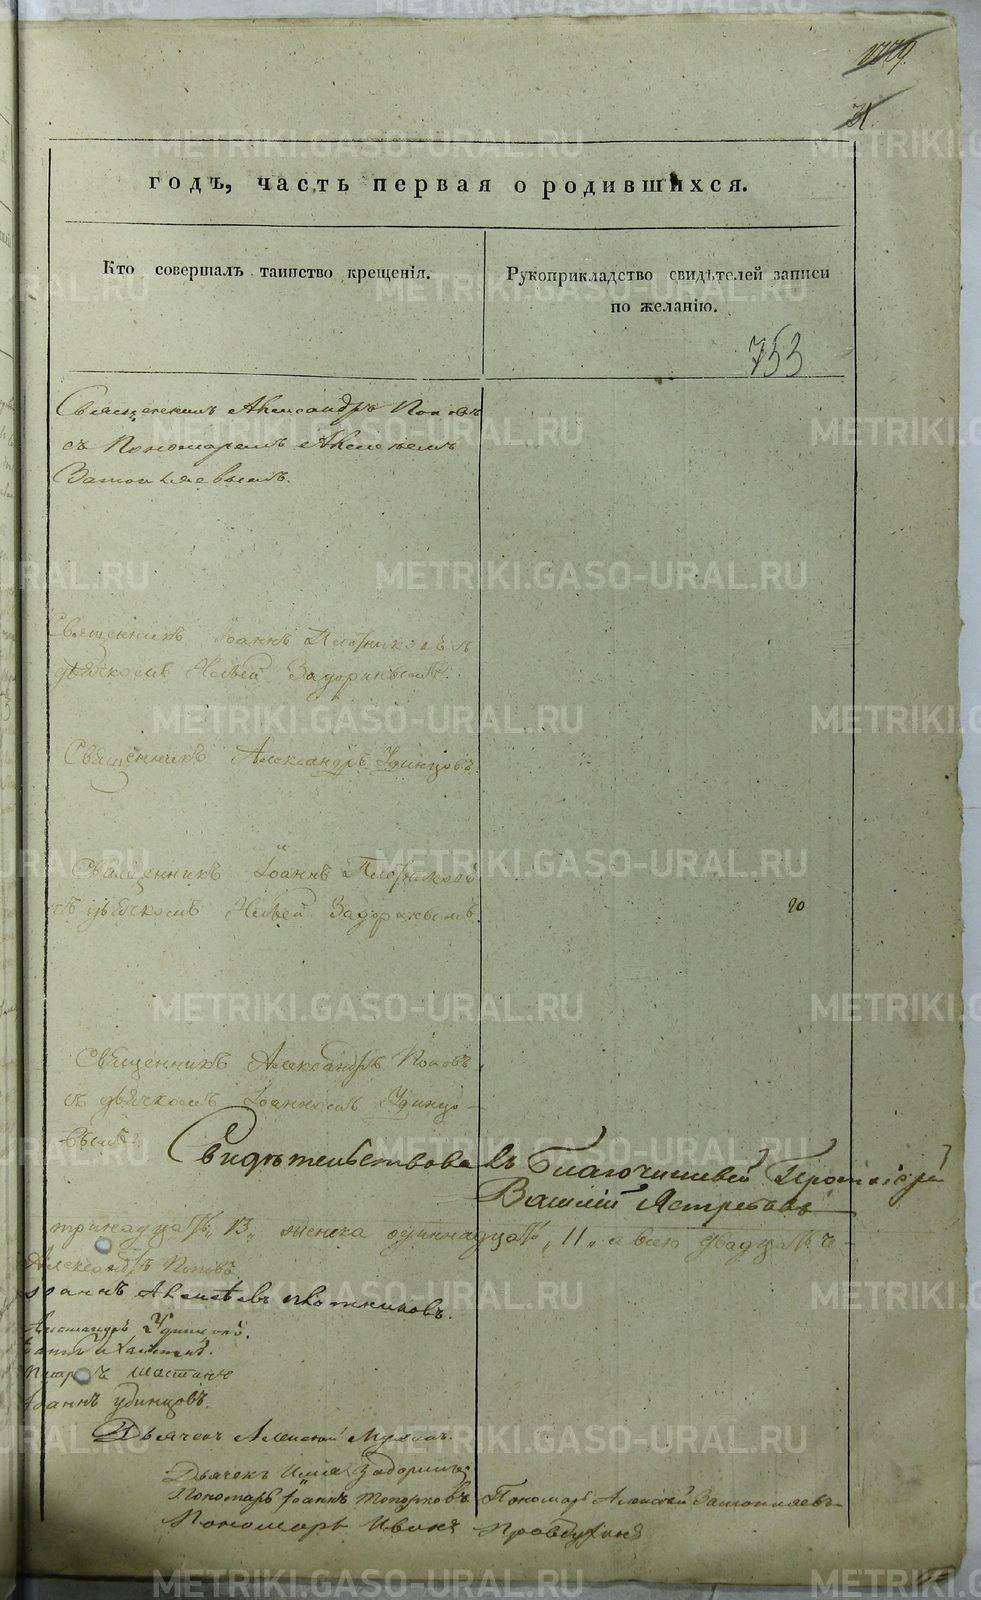 годъ, часть первая о родившихся.
Кто совершалъ таинство крещенія.
Рукоприкладство свидѣтелей записи
по желанію.
753
Священникъ Александръ Поповъ
съ Пономаремъ Алексѣемъ
Священникъ Іоаннъ Плотниковъ съ
дьячкомъ Ильей Задоринымъ.
Священникъ Александръ Удинцовъ.
Священникъ Іоаннъ Плотниковъ
съ дьячкомъ Ильей Задоринымъ.
20
Священникъ Александръ Поповъ
съ дьячкомъ Іоанномъ Удинцо-
вымъ.
Свидѣтельствовалъ Благочинный Протоіерей
Василій Ястребовъ
тринадцать, 13, женска одиннадцать, 11, а всего двадцать че-
Александръ Поповъ
Іоаннъ Алексѣевъ Плотниковъ.
Александръ Удинцовъ.
Іоаннъ Удинцовъ.
Дьячекъ Алексей
Дьячекъ Илья Задоринъ
Пономарь Іоаннъ Топорковъ Пономарь Алексей
Пономарь Иванъ
METRIKI.GASO-URAL.RU